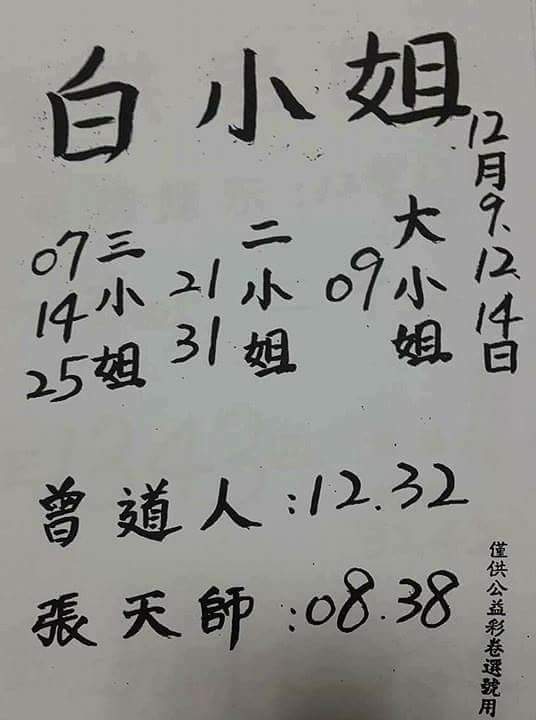 白小姐
12月9、12、14日
大小姐
09
二小姐
21
31
三小姐
07
14
25
曾道人:12.32
張天師:08.38
僅供公益彩卷選號用